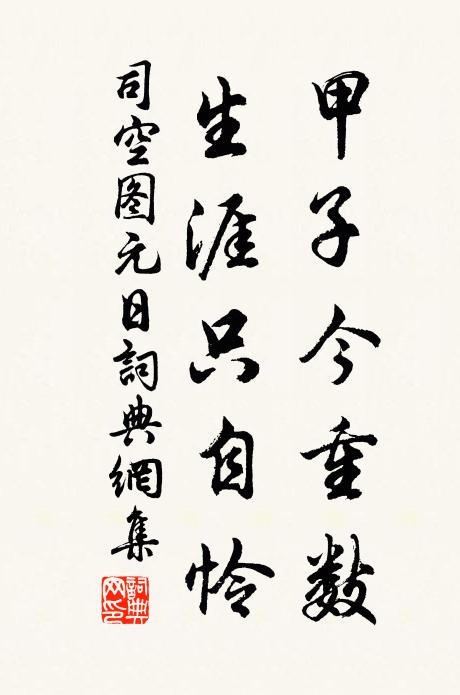 甲子今重数
生涯只自怜
司空图元日詞典網集
詞典